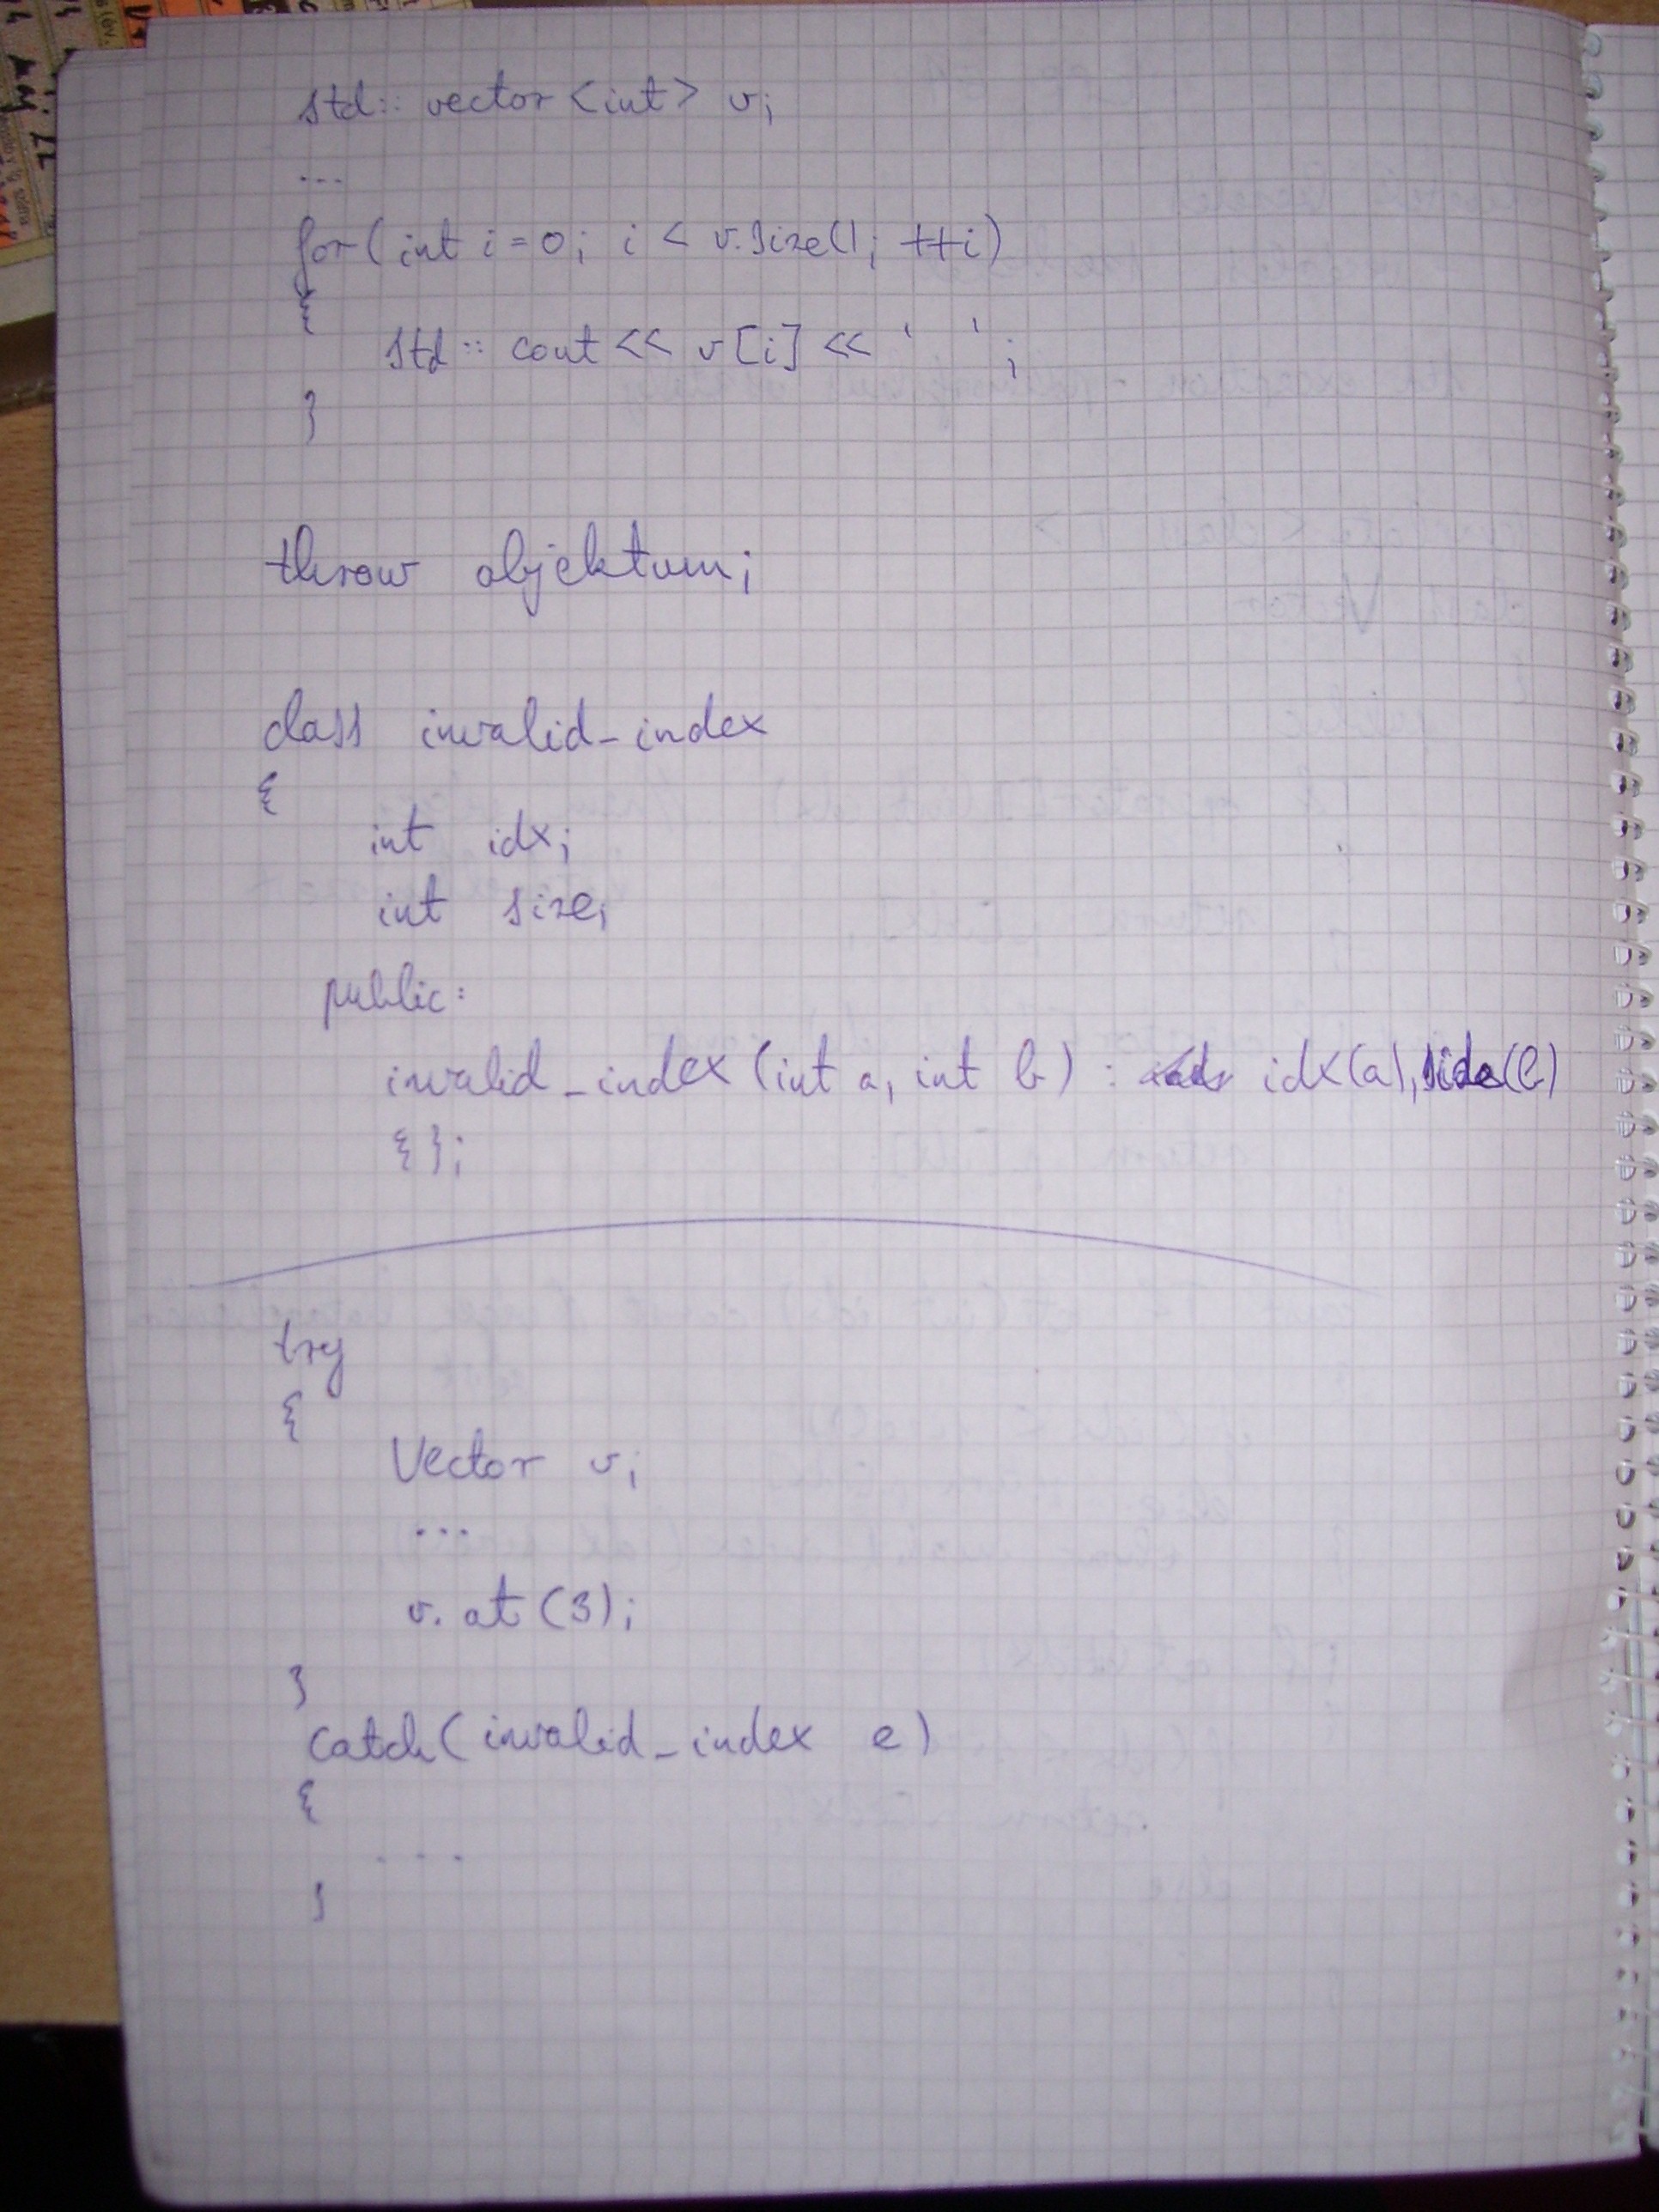 std:: vector <int> v;
...
for(int i=0; i < v.size(); ++i)
{
std:: cout << v[i] << ' ' ;
}
throw objektum;
class invalid_index
{
int idx;
int size;
public:
invalid_index (int a, int b) : idx(a), side(b)
{};
try
{
Vector v;
...
v. at (3);
}
catch( invalid_index e)
{
...
}